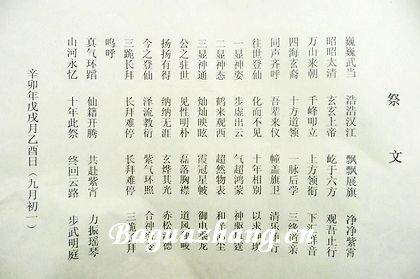 祭文
巍巍武当 浩浩汉江 飘飘展旗 净净紫霄
昭昭太清 玄玄上帝 屹于六方 观吾止行
万山来朝 千峰叩立 上方领衔 下 群音
四海玄裔 十方道领 一脉后学 三
同声齐呼 吾辈来仪 幢盖旗卫 清乐 行
往世登仙 化而不见 十年相别 以求
一显神姿 步虚出云 气超鸿蒙 和 生
二显神态 鹤来观西 超然物表 尘
三显神通 灿灿映眩 霞冠星帔 御 龙
公之驻世 见性明朴 磊落胸襟 道风
扬扬有得 纳纳无涯 玄烨其光 赤松
今之登仙 泽流教衍 紫气环照 合神
三跪长拜 长拜难停 长拜难停 三跪 拜
呜呼
真气环蹈 仙籍开腾 共赴紫霄 力振瑶琴
山河永忆 十年此祭 终回云路 步武明庭
辛卯年戊戌月乙酉日（九月初一）
Baguazhang.cn